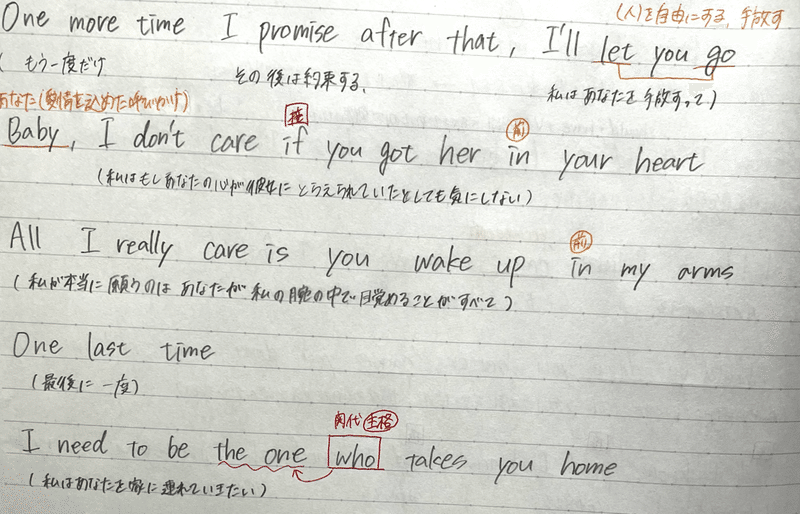 (人)を自由にする、手放す
One more time I promise after that, I'll let you go
( もう一度だけ その後は約束する、 私はあなたを手放すって、)
あなた(愛情を込めた呼びかけ)
接 前
Baby, I don't care if you got her in your heart
(私はもしあなたの心が彼女に とらえられていたとしても気にしない)
前
All I really care is you wake up in my arms
( 私が本当に願うのは あなたが 私の腕の中で目覚めることがすべて )
One last time
(最後に 一度)
関代 主格
I need to be the one who takes you home
(私はあなたを家に連れていきたい)